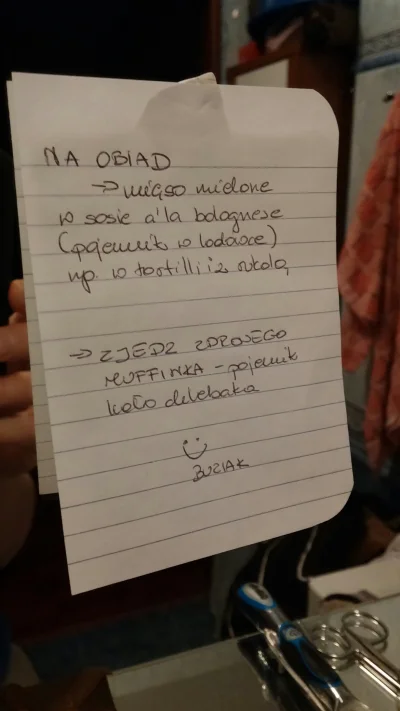 NA OBIAD
→ mięso mielone
w sosie a'la bolognese
(pojemnik w lodówce)
np. w tortilli i z rukolą
→ ZJEDZ ZDROJEGO
MUFFINKA - pojemnik
koło chlebaka
BUZIAK